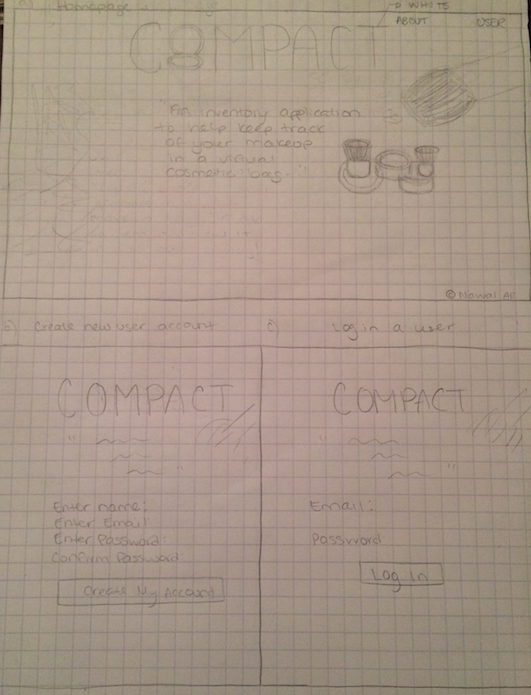 a) Homepage
→ WHITE
ABOUT
USER
COMPACT
"An inventory application
to help keep track
of your makeup
in a visual
cosmetic bag."
b) Create new user account
c) Log in a user
COMPACT
Enter name:
Enter Email
Enter Password:
Confirm Password
Create My Account
COMPACT
Email:
Password
Log In